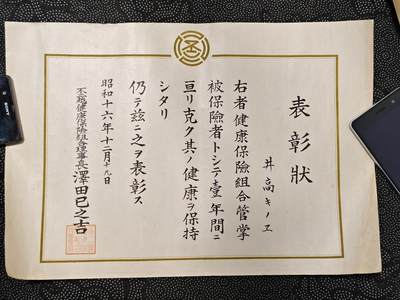 表彰狀
井高キノヱ
右者健康保險組合管掌
被保險者トシテ壹年間ニ
亘リ克ク其ノ健康ヲ保持
シタリ
仍テ玆ニ之ヲ表彰ス
昭和十六年十二月十九日
健康保險組合理事長 澤田巳之吉